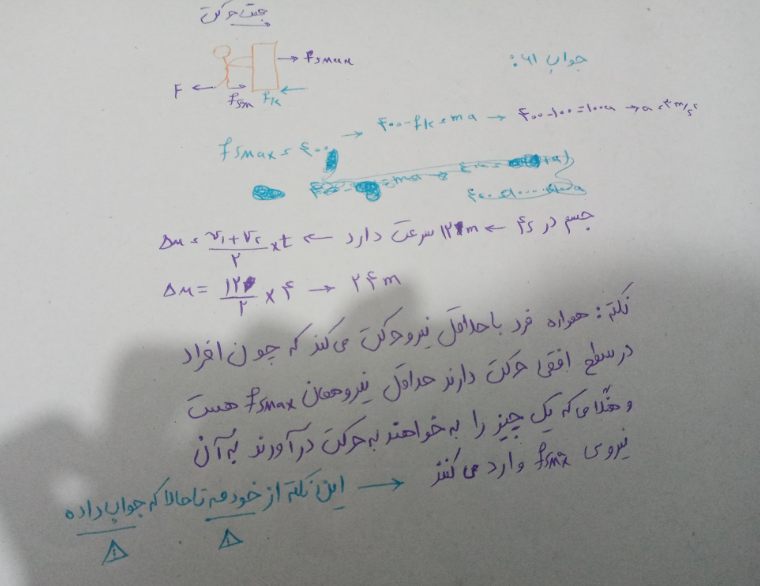 جهت حرکت
جواب ۶۱:
fsmax
F
fsm
fk
fsmax = ۴۰۰ → ۴۰۰ - fk = ma → ۴۰۰-۱۰۰ = ۱۰۰a → a = ۳ m/s²
جسم در ۴s ← ۱۲m سرعت دارد ← Δx = (v₁+v₂)/۲ × t
Δx = ۱۲/۲ × ۴ → ۲۴m
نکته: همواره فرد با حداقل نیرو حرکت می‌کند که چون افراد
در سطح افقی حرکت دارند حداقل نیرو همان fsmax هست
و هنگامی که یک چیز را به خواهند به حرکت درآورند به آن
نیروی fsmax وارد می‌کنند
این نکته از خودمه تا حالا که جواب داده